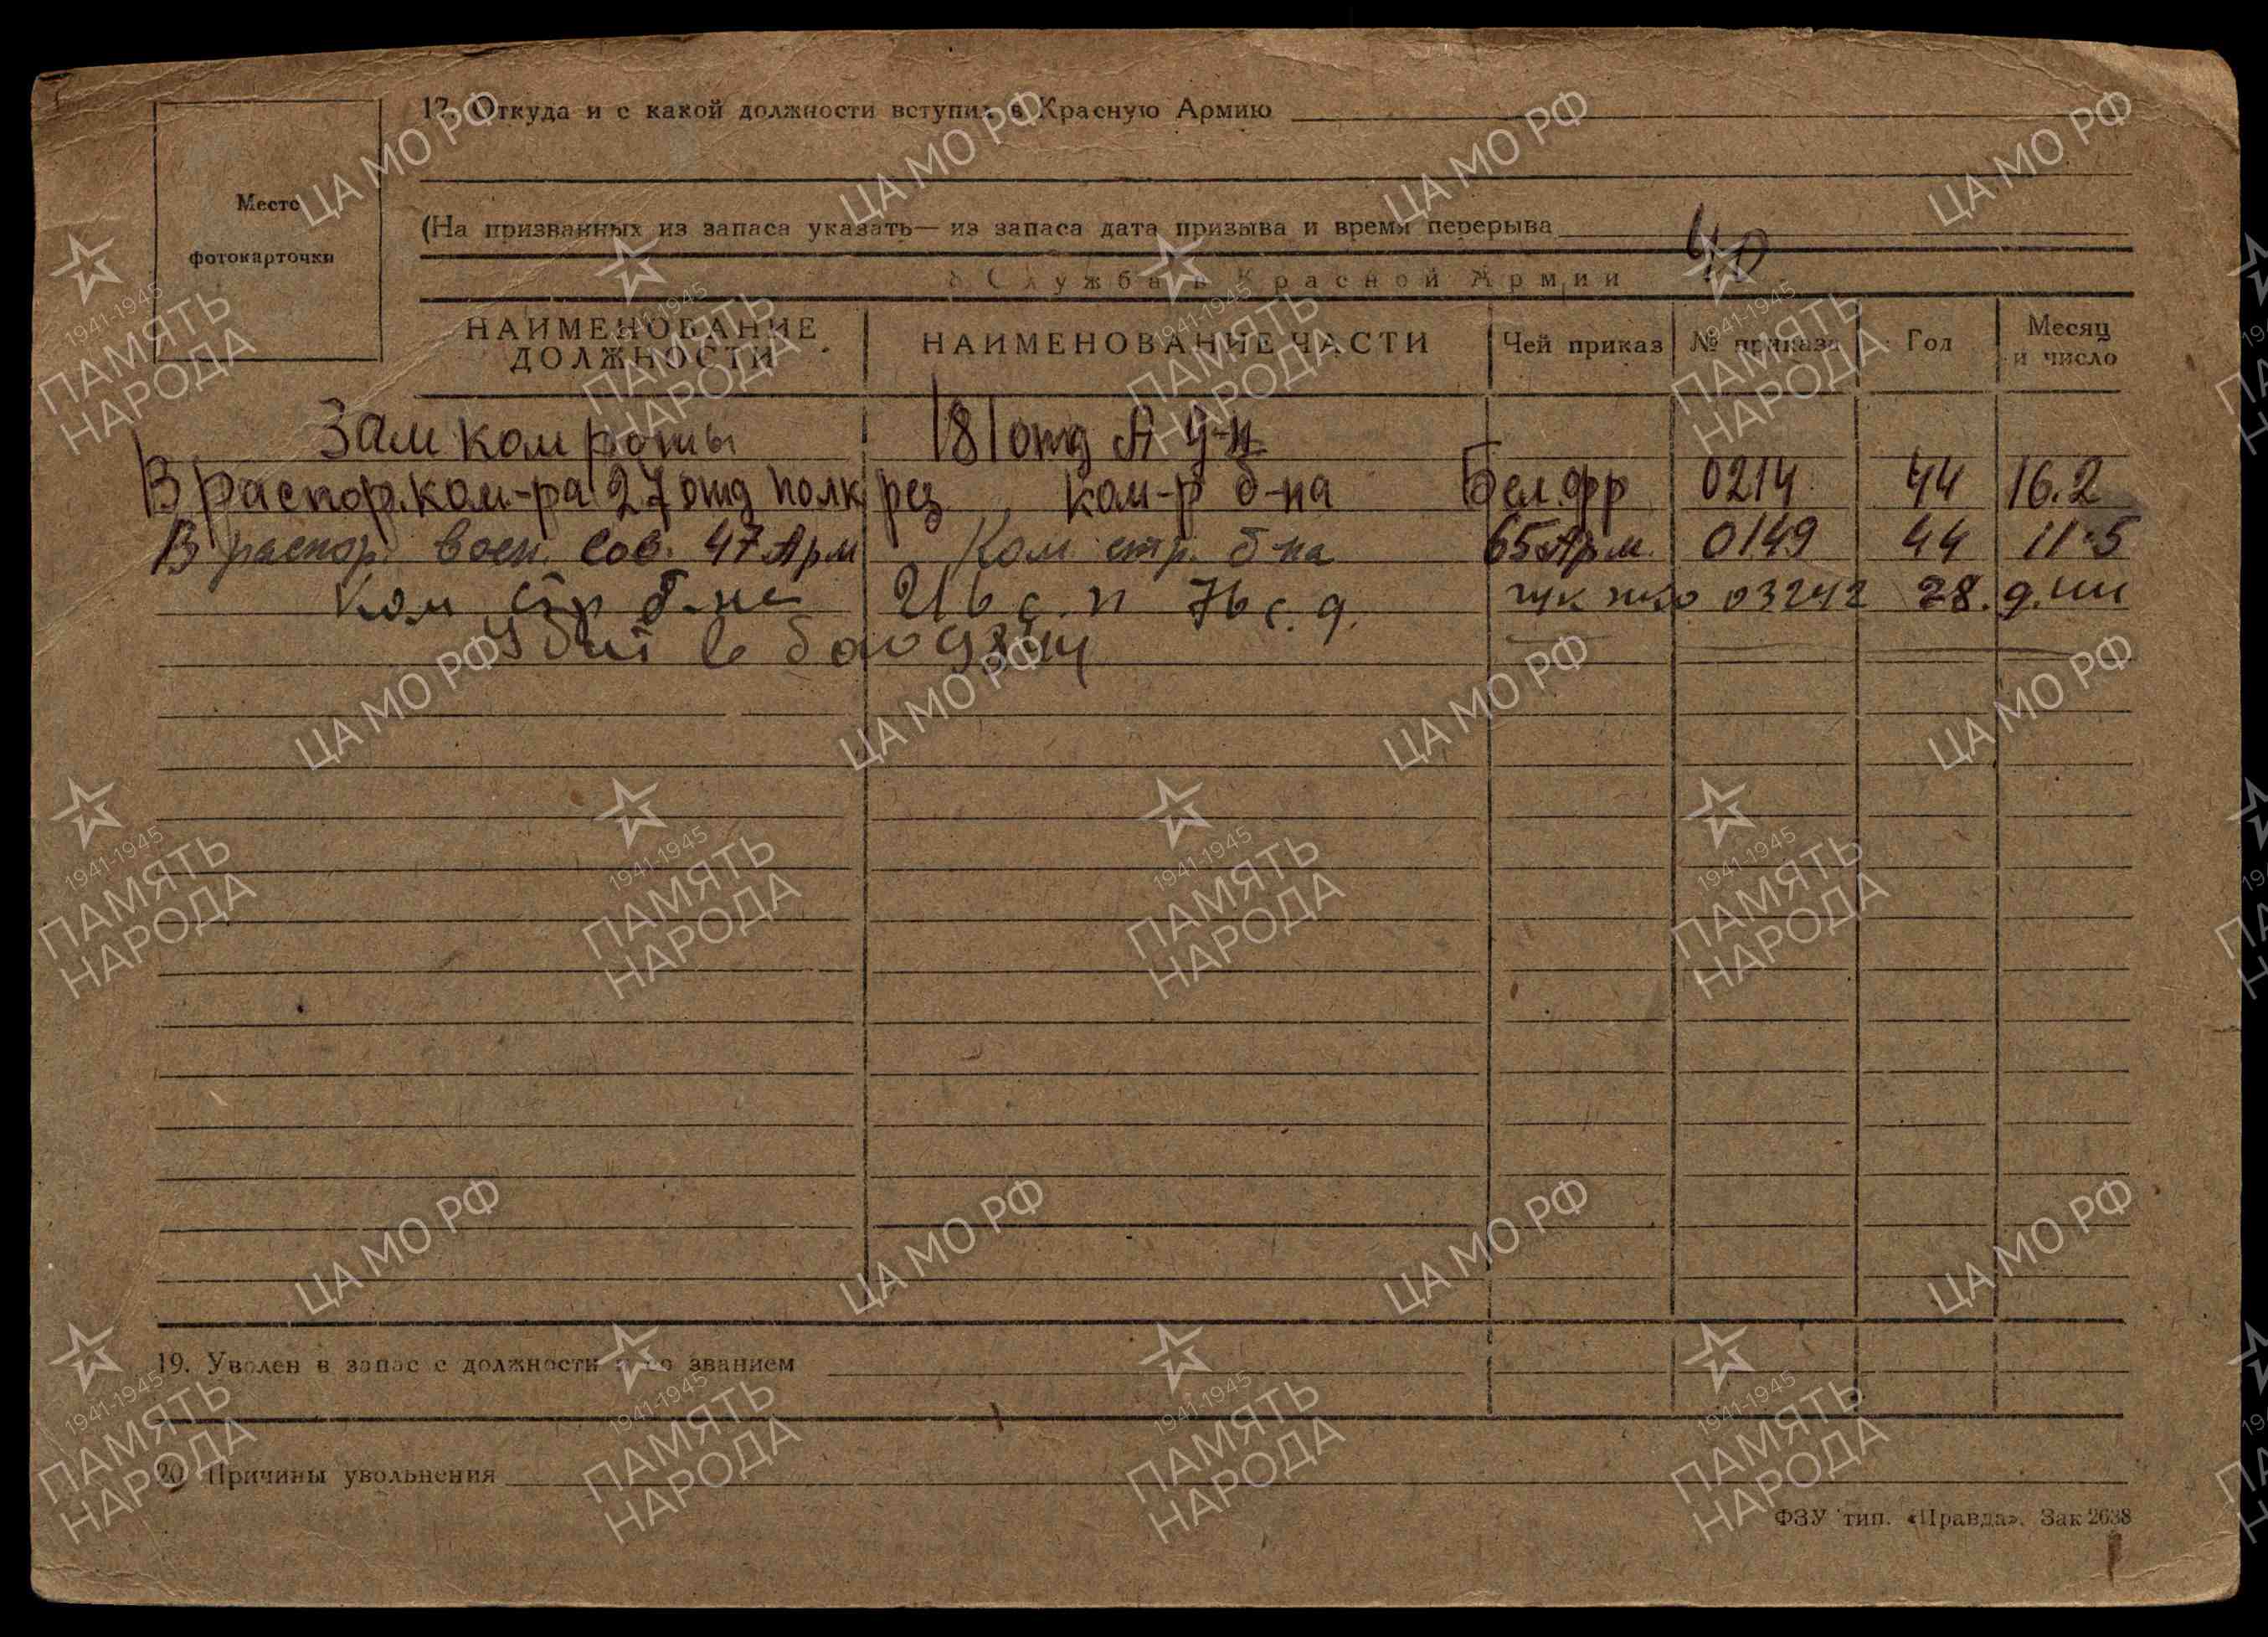 17. Откуда и с какой должности вступил в Красную Армию
Место
фотокарточки
(На призванных из запаса указать— из запаса дата призыва и время перерыва
40
Служба в Красной Армии
НАИМЕНОВАНИЕ ДОЛЖНОСТИ НАИМЕНОВАНИЕ ЧАСТИ Чей приказ № приказа Год Месяц и число
Зам ком роты 181 отд
В распор. ком-ра 27 отд полк рез ком-р б-на Бел.фр 0214 44 16.2
В распор. воен. Сов. 47 Арм Ком стр. б-на 65 Арм. 0149 44 11.5
Ком стр б-на 216 с.п 76 с.д. 03242 28.9.44
Убит в бою
19. Уволен в запас с должности и со званием
20. Причины увольнения
ФЗУ тип. «Правда». Зак 2638
ЦА МО РФ
1941-1945
ПАМЯТЬ
НАРОДА